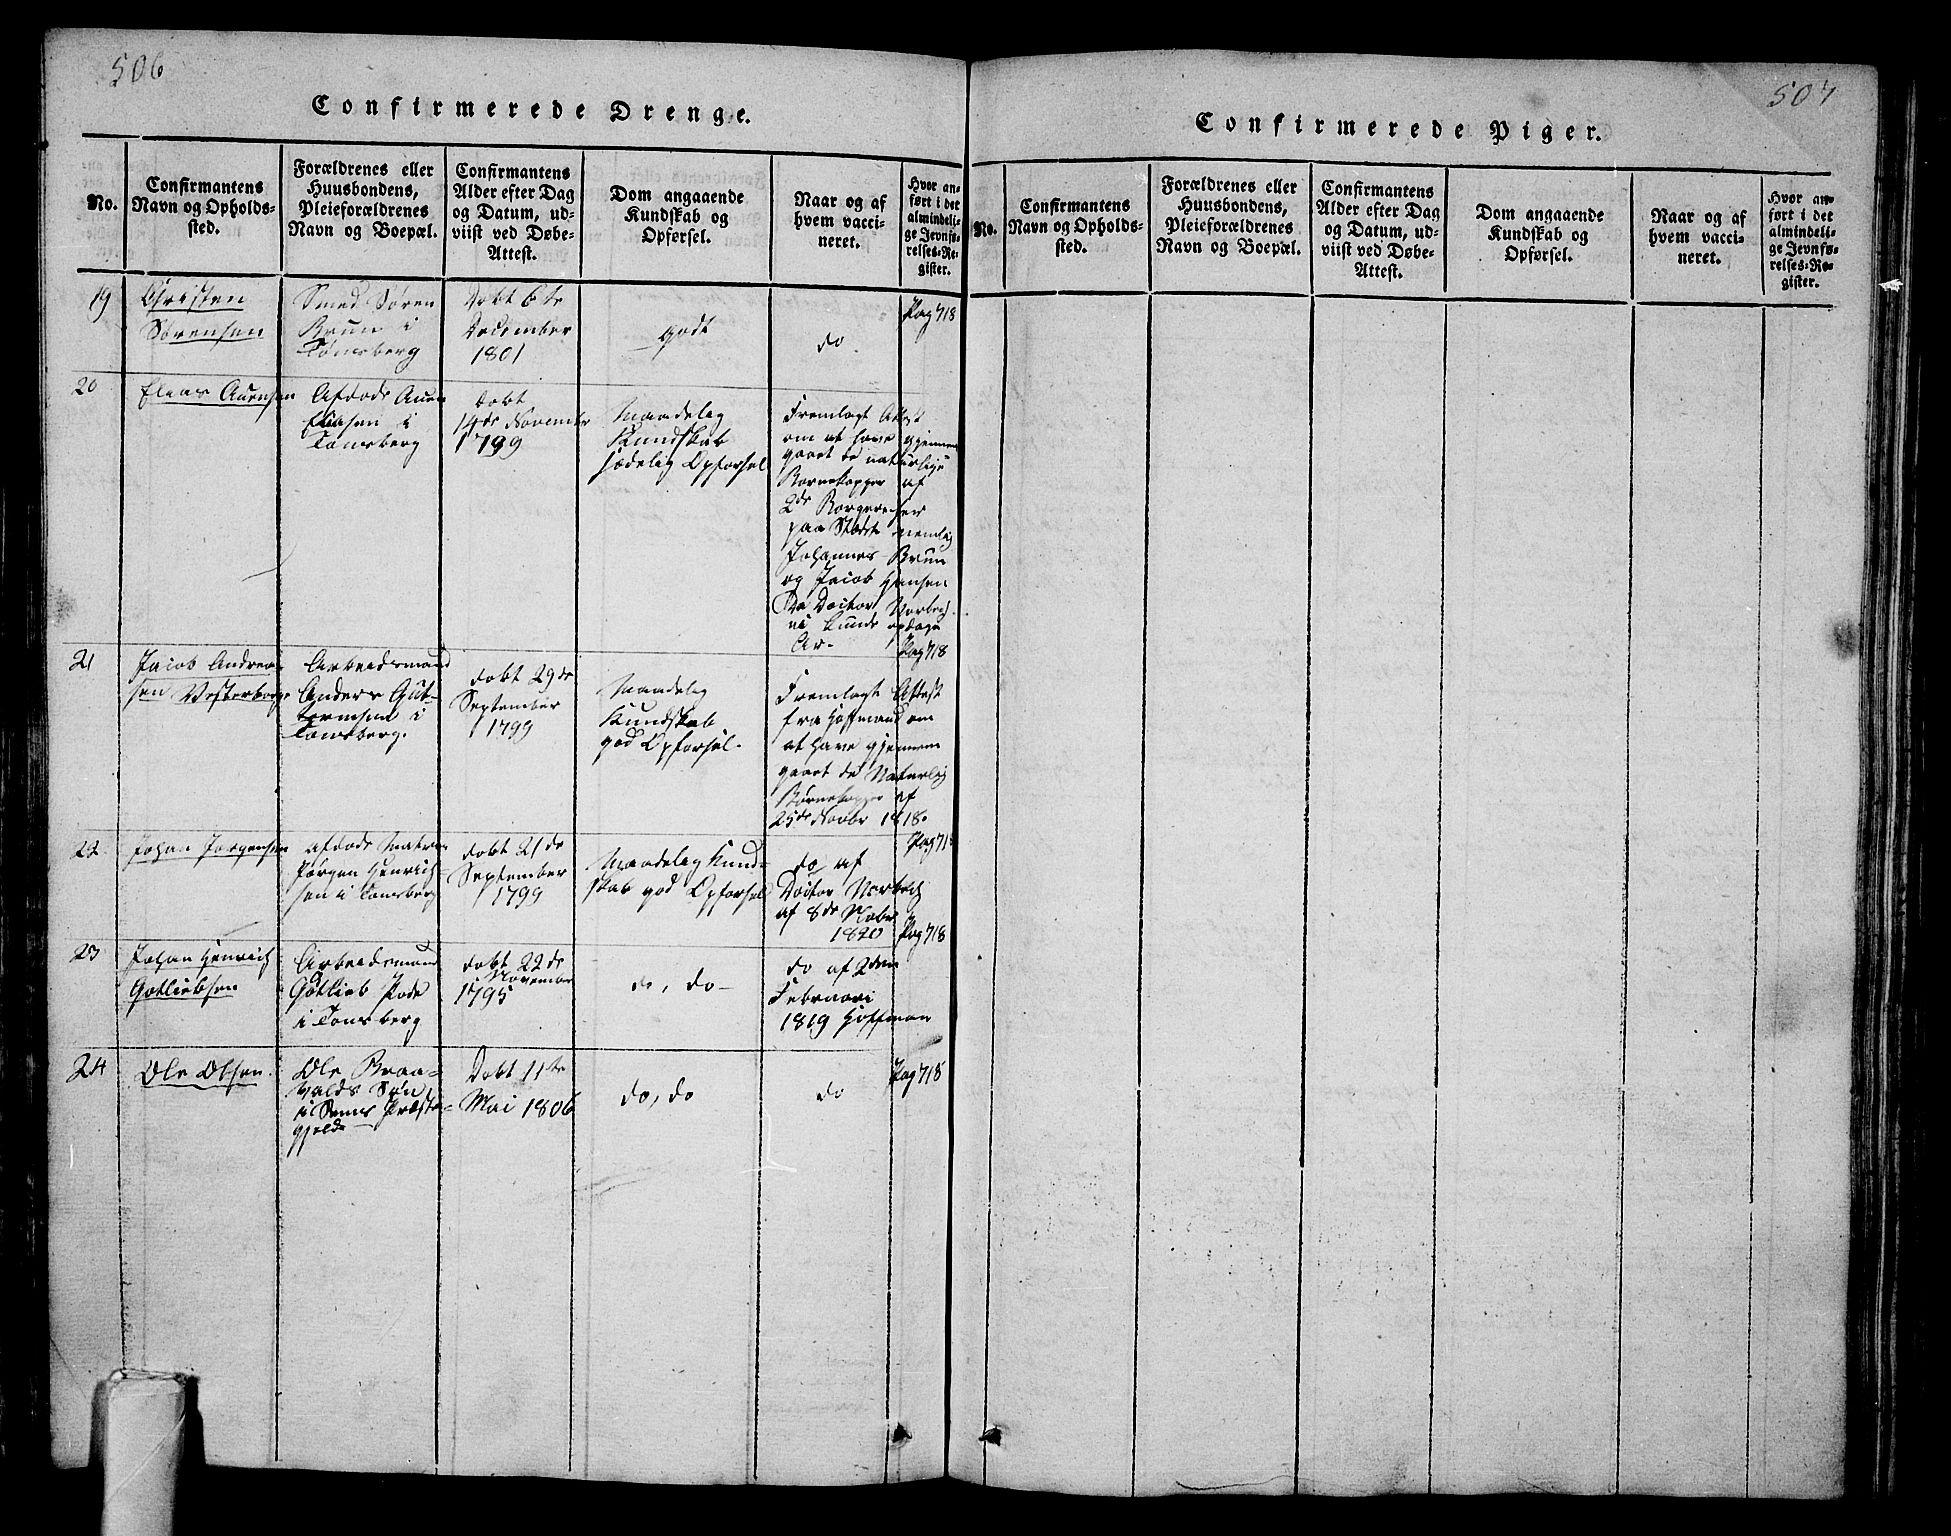 506
Confirmerede Drenge.
No.
Confirmantens
Navn og Opholds-
sted.
Forældrenes eller
Huusbondens,
Pleieforældrenes
Navn og Boepæl.
Confirmantens
Alder efter Dag
og Datum, ud-
viist ved Døbe-
Attest.
Dom angaaende
Kundskab og
Opførsel.
Naar og af
hvem vacci-
neret.
Hvor an-
ført i det
almindeli-
ge Jevnfø-
relses-Re-
gister.
19
Christen
Sørensen
Smed Søren
Bruun i
Tönsberg
Døbt 6te
December
1801
godt
do
Pag 718
20
Elias Auensen
Afdøde Auen
Eliasen i
Tönsberg
Døbt
14de November
1799
Maadelig
Kundskab
sædelig Opførsel
Fremlagt Attest
om at have gjennem
gaaet de naturlige
Børnekopper af
2de Borgere her
paa Stedet nemlig
Johannes Bruun
og Jacob Hansen
Da Doctor
Ar-
Pag 718
21
Jacob Andrea-
sen Vesterborge
Arbeidsmand
Anders Gut-
tormsen i
Tönsberg.
døbt 29de
September
1799
Maadelig
Kundskab
god Opførsel.
Fremlagt Attest
fra Hoffmand om
at have gjennem
gaaet de Naturlig
Børnekopper af
25de Novbr 1818.
Pag 71
22
Johan Jørgensen
afdøde Matros
Jørgen Henrich-
sen i Tönsberg
døbt 21de
September
1799
Maadelig Kund-
skab god Opførsel
do af
Doctor Norbech
af 8de Novbr
1820
Pag 718
23
Johan Henrich
Gotliebsen
Arbeidsmand
Gotlieb Pode
i Tönsberg
døbt 22de
November
1795
do, do-
do af 2den
Februari
1819 Hoffman
24
Ole Olsen
Ole Braa-
valds Søn
i Sems Præste-
gjeld
Døbt 11te
Mai 1806
do, do
do
Pag 718
507
Confirmerede Piger.
No.
Confirmantens
Navn og Opholds-
sted.
Forældrenes eller
Huusbondens,
Pleieforældrenes
Navn og Boepæl.
Confirmantens
Alder efter Dag
og Datum, ud-
viist ved Døbe-
Attest.
Dom angaaende
Kundskab og
Opførsel.
Naar og af
hvem vacci-
neret.
Hvor an-
ført i det
almindeli-
ge Jevnfø-
relses-Re-
gister.